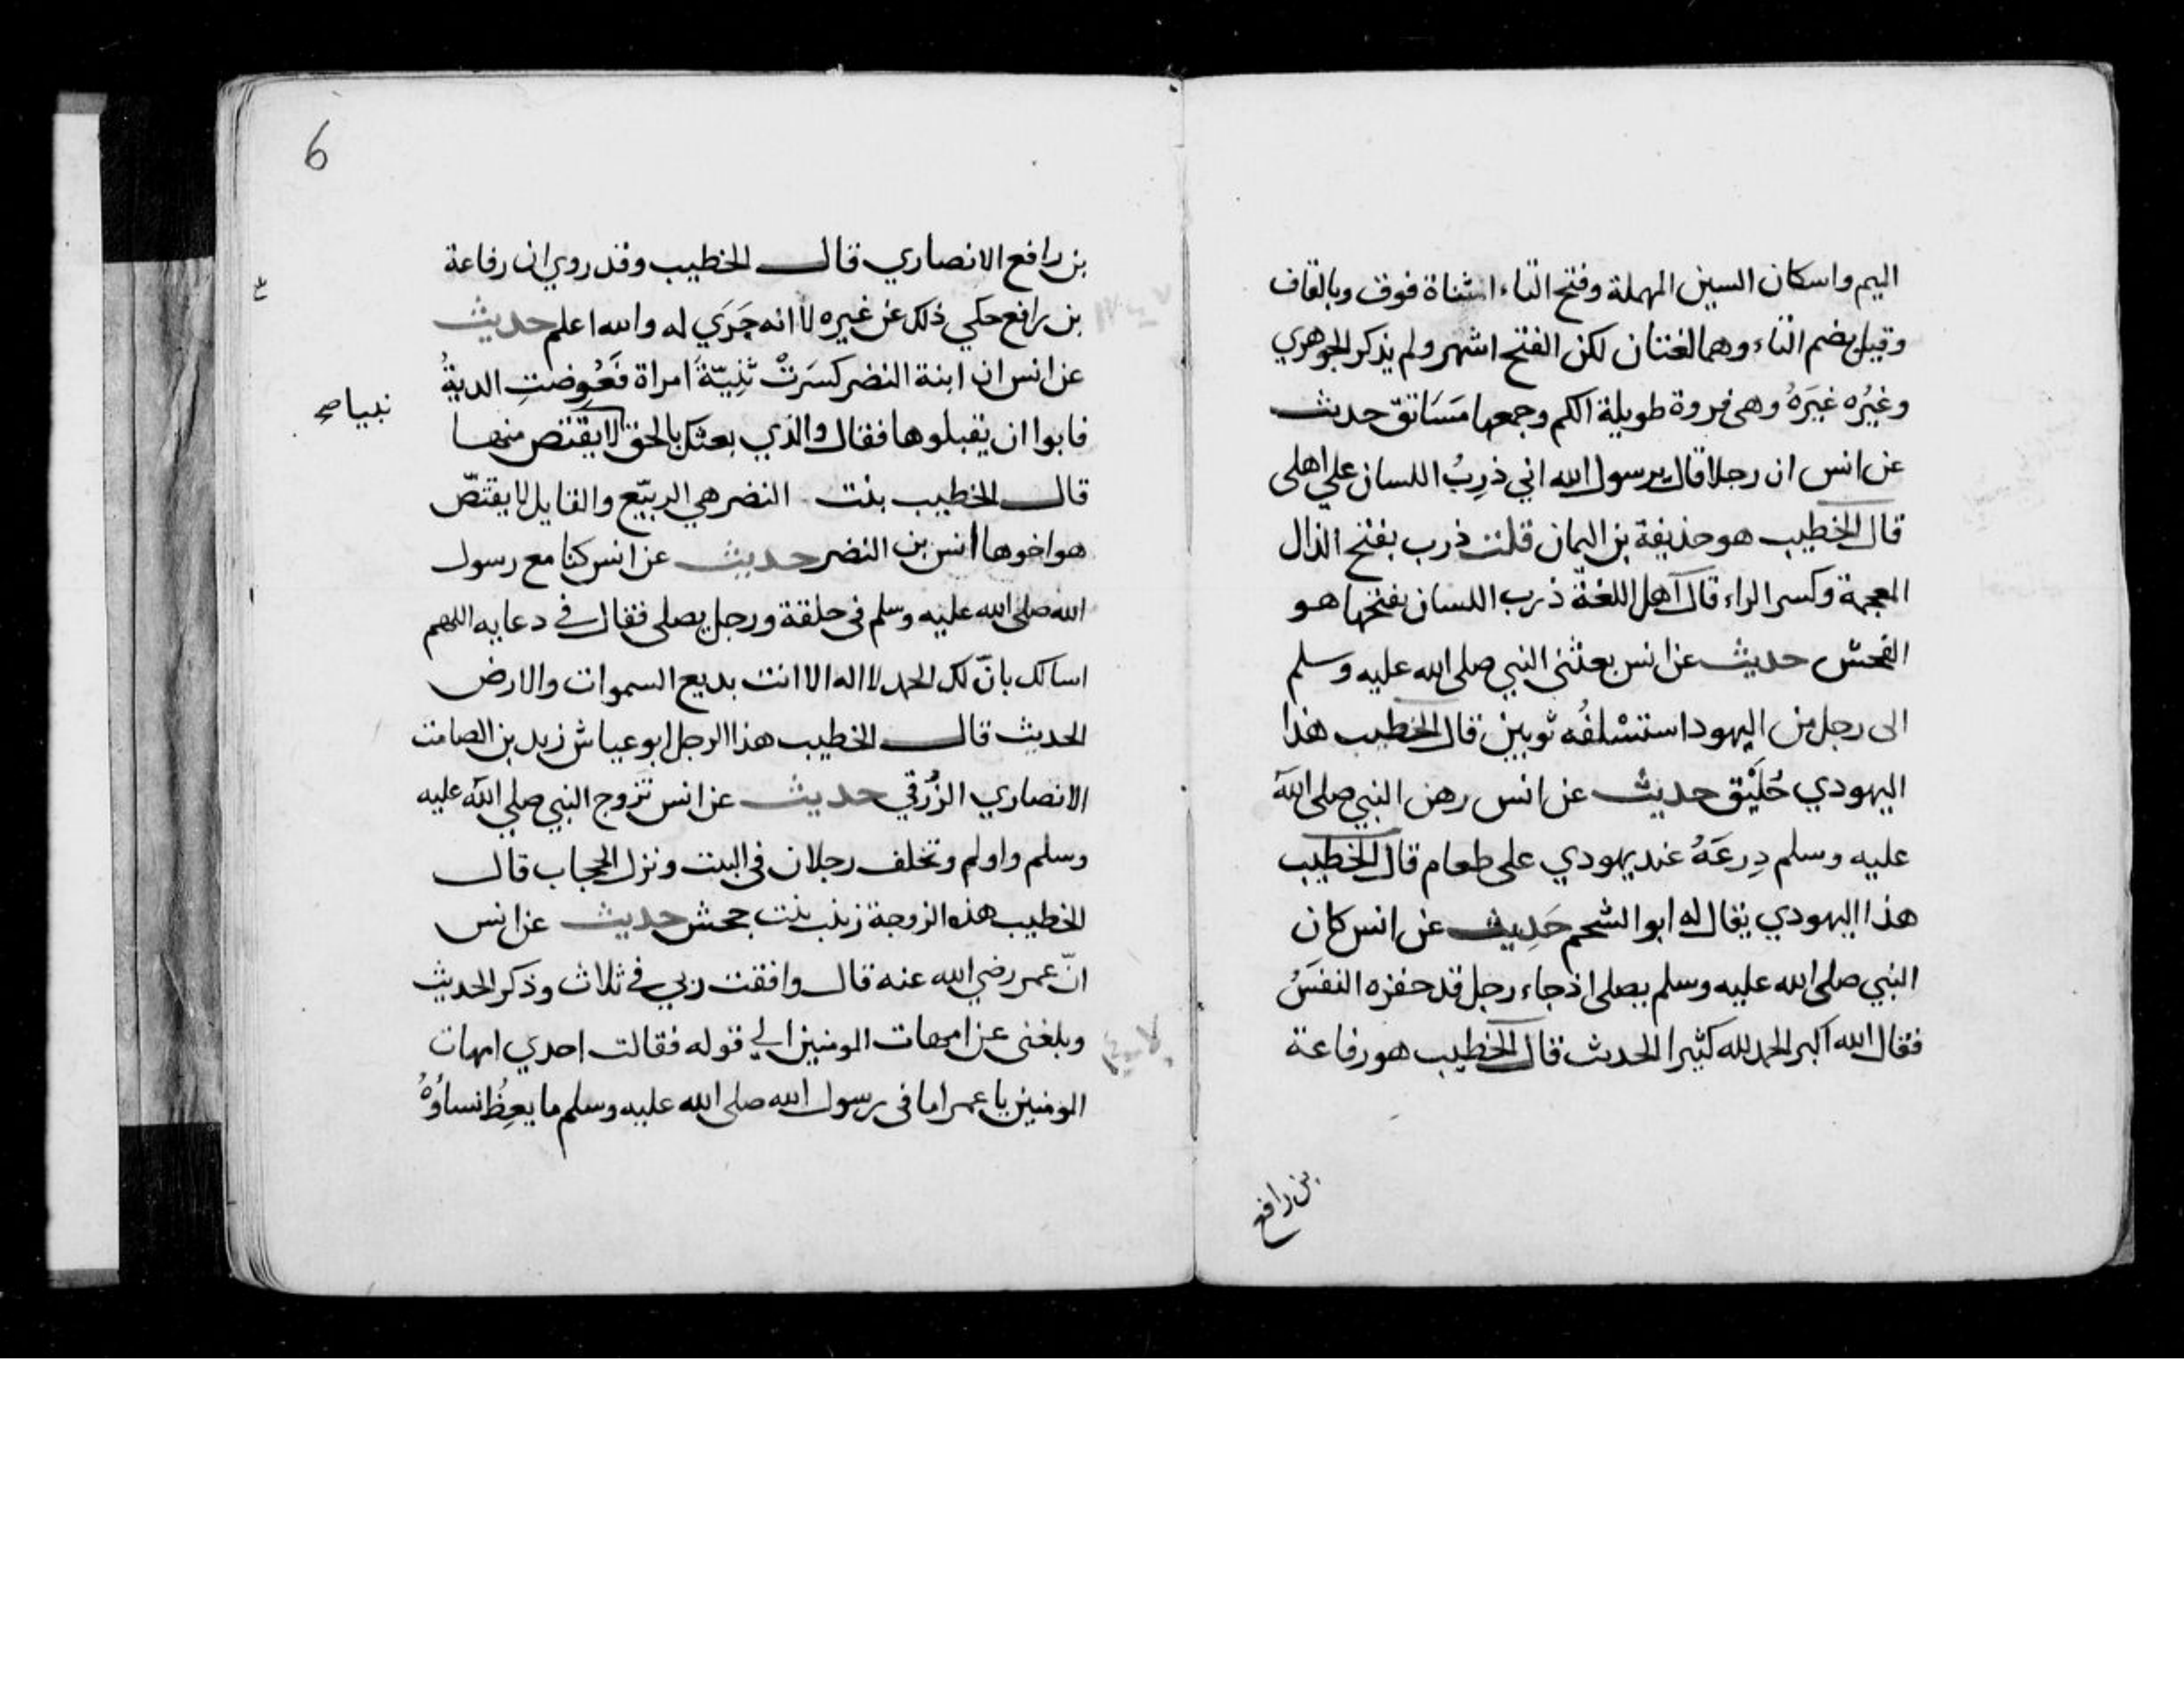 الميم واسكان السين المهملة وفتح التاء المثناة فوق وبالقاف
وقيل بضم التاء وهما لغتان لكن الفتح اشهر ولم يذكر الجوهري
وغيره غيره وهي فروة طويلة الكم وجمعها مساتق حديث
عن انس ان رجلا قال يرسول الله اني ذرب اللسان علي اهلى
قال الخطيب هو حذيفة بن اليمان قلت ذرب بفتح الذال
المعجمة وكسر الراء قال اهل اللغة ذرب اللسان بفتحها هو
الفحش حديث عن انس بعثني النبي صلى الله عليه وسلم
الى رجل من اليهود استسلفه ثوبين قال الخطيب هذا
اليهودي حليق حديث عن انس رهن النبي صلى الله
عليه وسلم درعه عند يهودي على طعام قال الخطيب
هذا اليهودي يقال له ابو الشحم حديث عن انس كان
النبي صلى الله عليه وسلم يصلى اذ جاء رجل قد حفزه النفس
فقال الله اكبر الحمد لله كثيرا الحديث قال الخطيب هو رفاعة
بن رافع
6
بن رافع الانصاري قال الخطيب وقد روي ان رفاعة
بن رافع حكي ذلك عن غيره لا انه جري له والله اعلم حديث
عن انس ان ابنة النضر كسرت ثنية امراة فعوضت الدية
فابوا ان يقبلوها فقال والذي بعثك بالحق لا يقتص منها
قال الخطيب بنت النضر هي الربيع والقايل لا يقتص
هو اخوها انس بن النضر حديث عن انس كنا مع رسول
الله صلى الله عليه وسلم في حلقة ورجل يصلى فقال في دعايه اللهم
اسالك بان لك الحمد لا اله الا انت بديع السموات والارض
الحديث قال الخطيب هذا الرجل ابو عياش زيد بن الصامت
الانصاري الزرقي حديث عن انس تزوج النبي صلي الله عليه
وسلم واولم وتخلف رجلان في البيت ونزل الحجاب قال
الخطيب هذه الزوجة زينب بنت جحش حديث عن انس
ان عمر رضي الله عنه قال وافقت ربي في ثلاث وذكر الحديث
وبلغني عن امهات المومنين الي قوله فقالت احدي امهات
المومنين يا عمر اما في رسول الله صلى الله عليه وسلم ما يعظ نساؤه